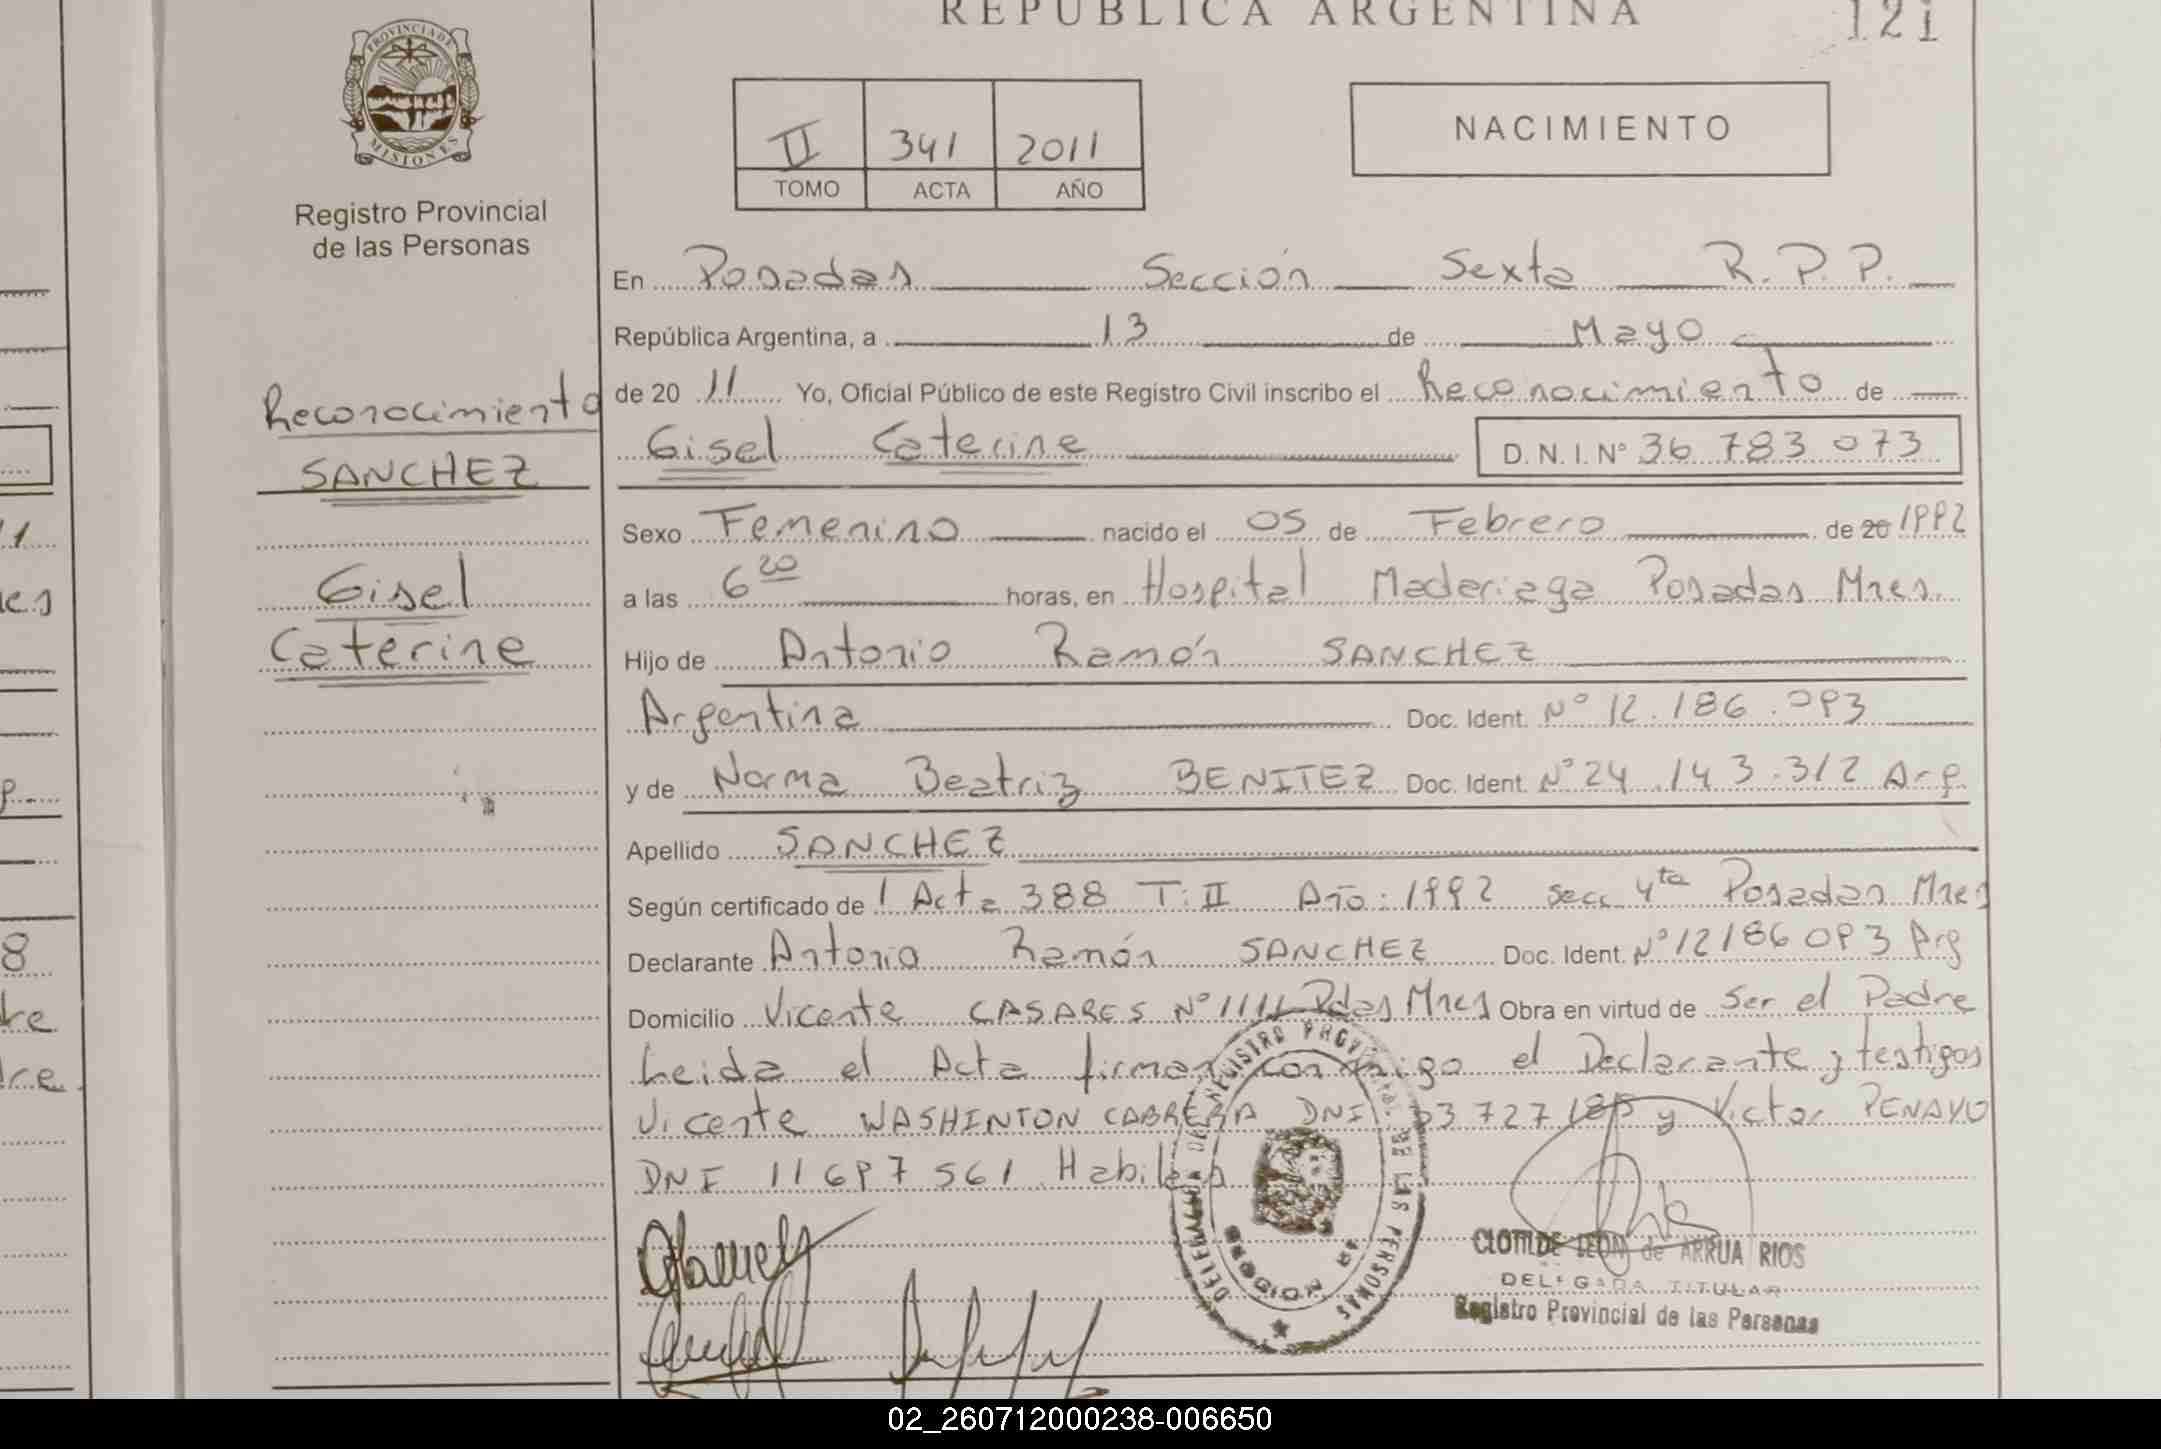 REPUBLICA ARGENTINA
121
PROVINCIA DE
MISIONES
Registro Provincial
de las Personas
II 341 2011
TOMO ACTA AÑO
NACIMIENTO
En Posadas Sección Sexta R.P.P.
República Argentina, a 13 de Mayo
de 20 11 Yo, Oficial Público de este Registro Civil inscribo el Reconocimiento de
Gisel Caterine D.N.I. Nº 36 783 073
Reconocimiento
SANCHEZ
Gisel
Caterine
Sexo Femenino nacido el 05 de Febrero de 20 1992
a las 6 20 horas, en Hospital Madariaga Posadas Mnes.
Hijo de Antonio Ramón SANCHEZ
Argentina Doc. Ident. Nº 12.186.093
y de Norma Beatriz BENITEZ Doc. Ident. Nº 24.143.312 Arg.
Apellido SANCHEZ
Según certificado de 1 Acta 388 T: II Año: 1992 secc 4ta Posadas Mnes
Declarante Antonio Ramón SANCHEZ Doc. Ident. Nº 12186093 Arg
Domicilio Vicente CASARES Nº 1111 Pdas Mnes Obra en virtud de Ser el Padre
Leida el Acta firman conmigo el Declarante y testigos
Vicente WASHINTON CABRERA DNI y Victor PENAYO
DNI 11697561 Habiles
DELEGACION DEL REGISTRO PROVINCIAL DE LAS PERSONAS
CLOTILDE LEON de ARRUA RIOS
DELEGADA TITULAR
Registro Provincial de las Personas
02_260712000238-006650